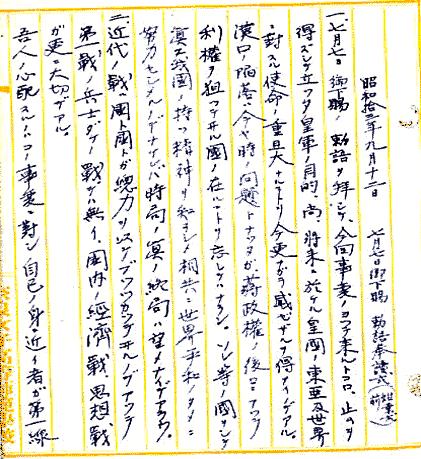 昭和拾三年九月十二日
七月七日御下賜 勅語奉読式
一、七月七日御下賜ノ勅語ヲ拝シテ、今回事変ノヨツテ来ルトコロ、止ムヲ
得ズシテ立ツタ皇軍ノ目的、尚将来ニ於ケル皇国ノ東亜及世界
ニ対スル使命ノ重且大ナルコトヲ今更ナガラ感ゼザルヲ得ナイノデアル。
漢口ノ陥落ハ今ヤ時ノ問題トナツタガ蒋政権ノ後ニアツテ
利権ヲ狙ツテヰル国ノ在ルコトヲ忘レテハナラン。ソレ等ノ国ヲシテ
真ニ我国ノ持ツ精神ヲ知ラシメ相共ニ世界平和ノタメニ
努力セシメルノデナケレバ時局ノ真ノ終局ハ望メナイデアラウ。
二、近代ノ戦ハ国ト国トガ総力ヲ以テブツツカツテヰルノデアツテ
第一戦ノ兵士ダケノ戦デハ無イ、国内ノ経済戦、思想戦
ガ更ニ大切デアル。
吾人ノ心配スルハコノ事変ニ対シ自己ノ身ニ近イ者ガ第一線